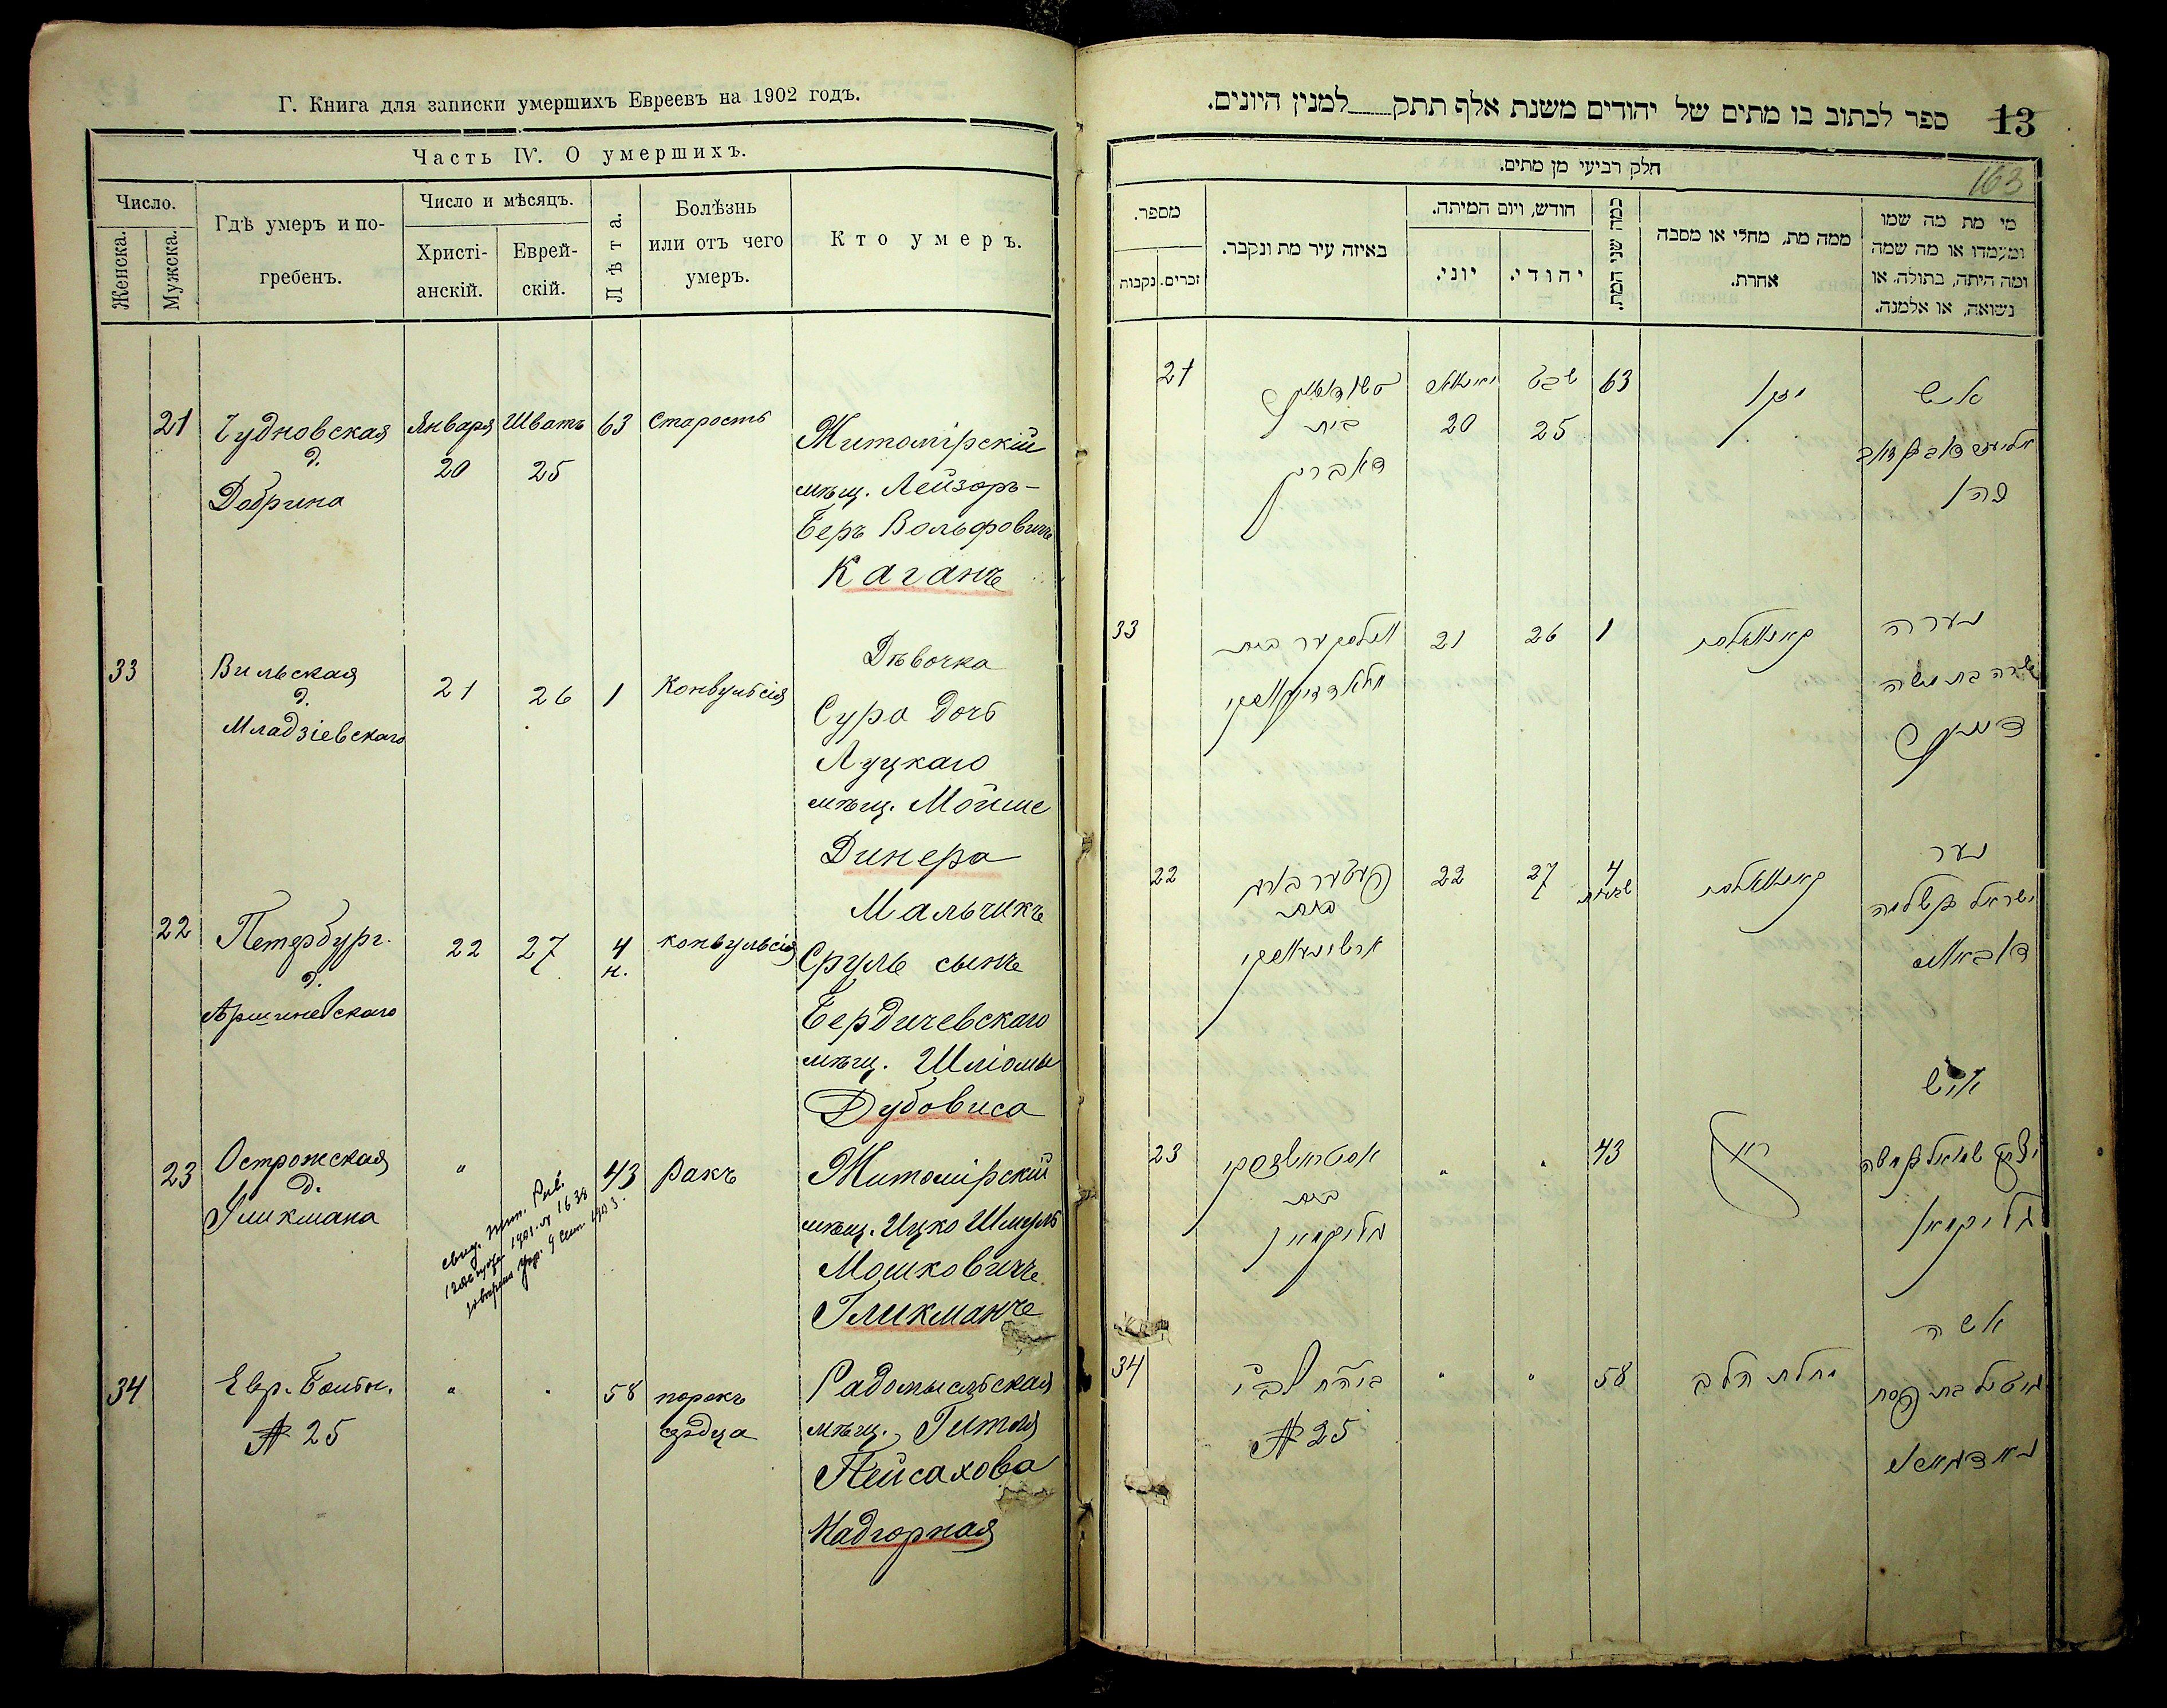 Г. Книга для записки умершихъ Евреевъ на 1902 годъ.
Часть IV. О умершихъ.
Число.
Женска.
Мужска.
Гдѣ умеръ и по-
гребенъ.
Число и мѣсяцъ.
Христі-
анскій.
Еврей-
скій.
Лѣта.
Болѣзнь
или отъ чего
умеръ.
Кто умеръ.
21
Чудновская
д.
Добрина
Января
20
Шватъ
25
63
Старость
Житомірскій
мѣщ. Лейзоръ-
Беръ Вольфовичъ
Каганъ
33
Вильская
д.
Младзіевскаго
21
26
1
Конвульсія
Дѣвочка
Сура дочь
Луцкаго
мѣщ. Мойше
Динера
22
Петербург.
д.
Аршиневскаго
22
27
4
н.
конвульсія
Мальчикъ
Сруль сынъ
Бердичевскаго
мѣщ. Шліомы
Дубовиса
23
Острожская
д.
Гликмана
"
43
Ракъ
Житомірскій
мѣщ. Ицко Шмуль
Мошковичъ
Гликманъ
34
Евр. Больн.
№ 25
"
"
58
порокъ
сердца
Радомысльская
мѣщ. Гитля
Пейсахова
Надгорная
13
ספר לכתוב בו מתים של יהודים משנת אלף תתק למנין היונים.
163
חלק רביעי מן מתים.
מי מת מה שמו
ומעמדו או מה שמה
ומה היתה, בתולה, או
נשואה, או אלמנה.
ממה מת, מחלי או מסבה
אחרת.
כמה שני המת.
חודש, ויום המיתה.
יהודי.
יוני.
באיזה עיר מת ונקבר.
מספר.
זכרים.
נקבות
21
בית
דאברין
20
שבט
25
63
זקן
איש
כהן
33
21
26
1
נערה
שרה בת משה
22
בית
22
27
4
שבועות
נער
ישראל בן שלמה
23
בית
גליקמאן
"
"
43
ראק
איש
יצחק שמואל בן משה
גליקמאן
34
№ 25
"
"
58
מחלת הלב
אשה
גיטל בת פסח